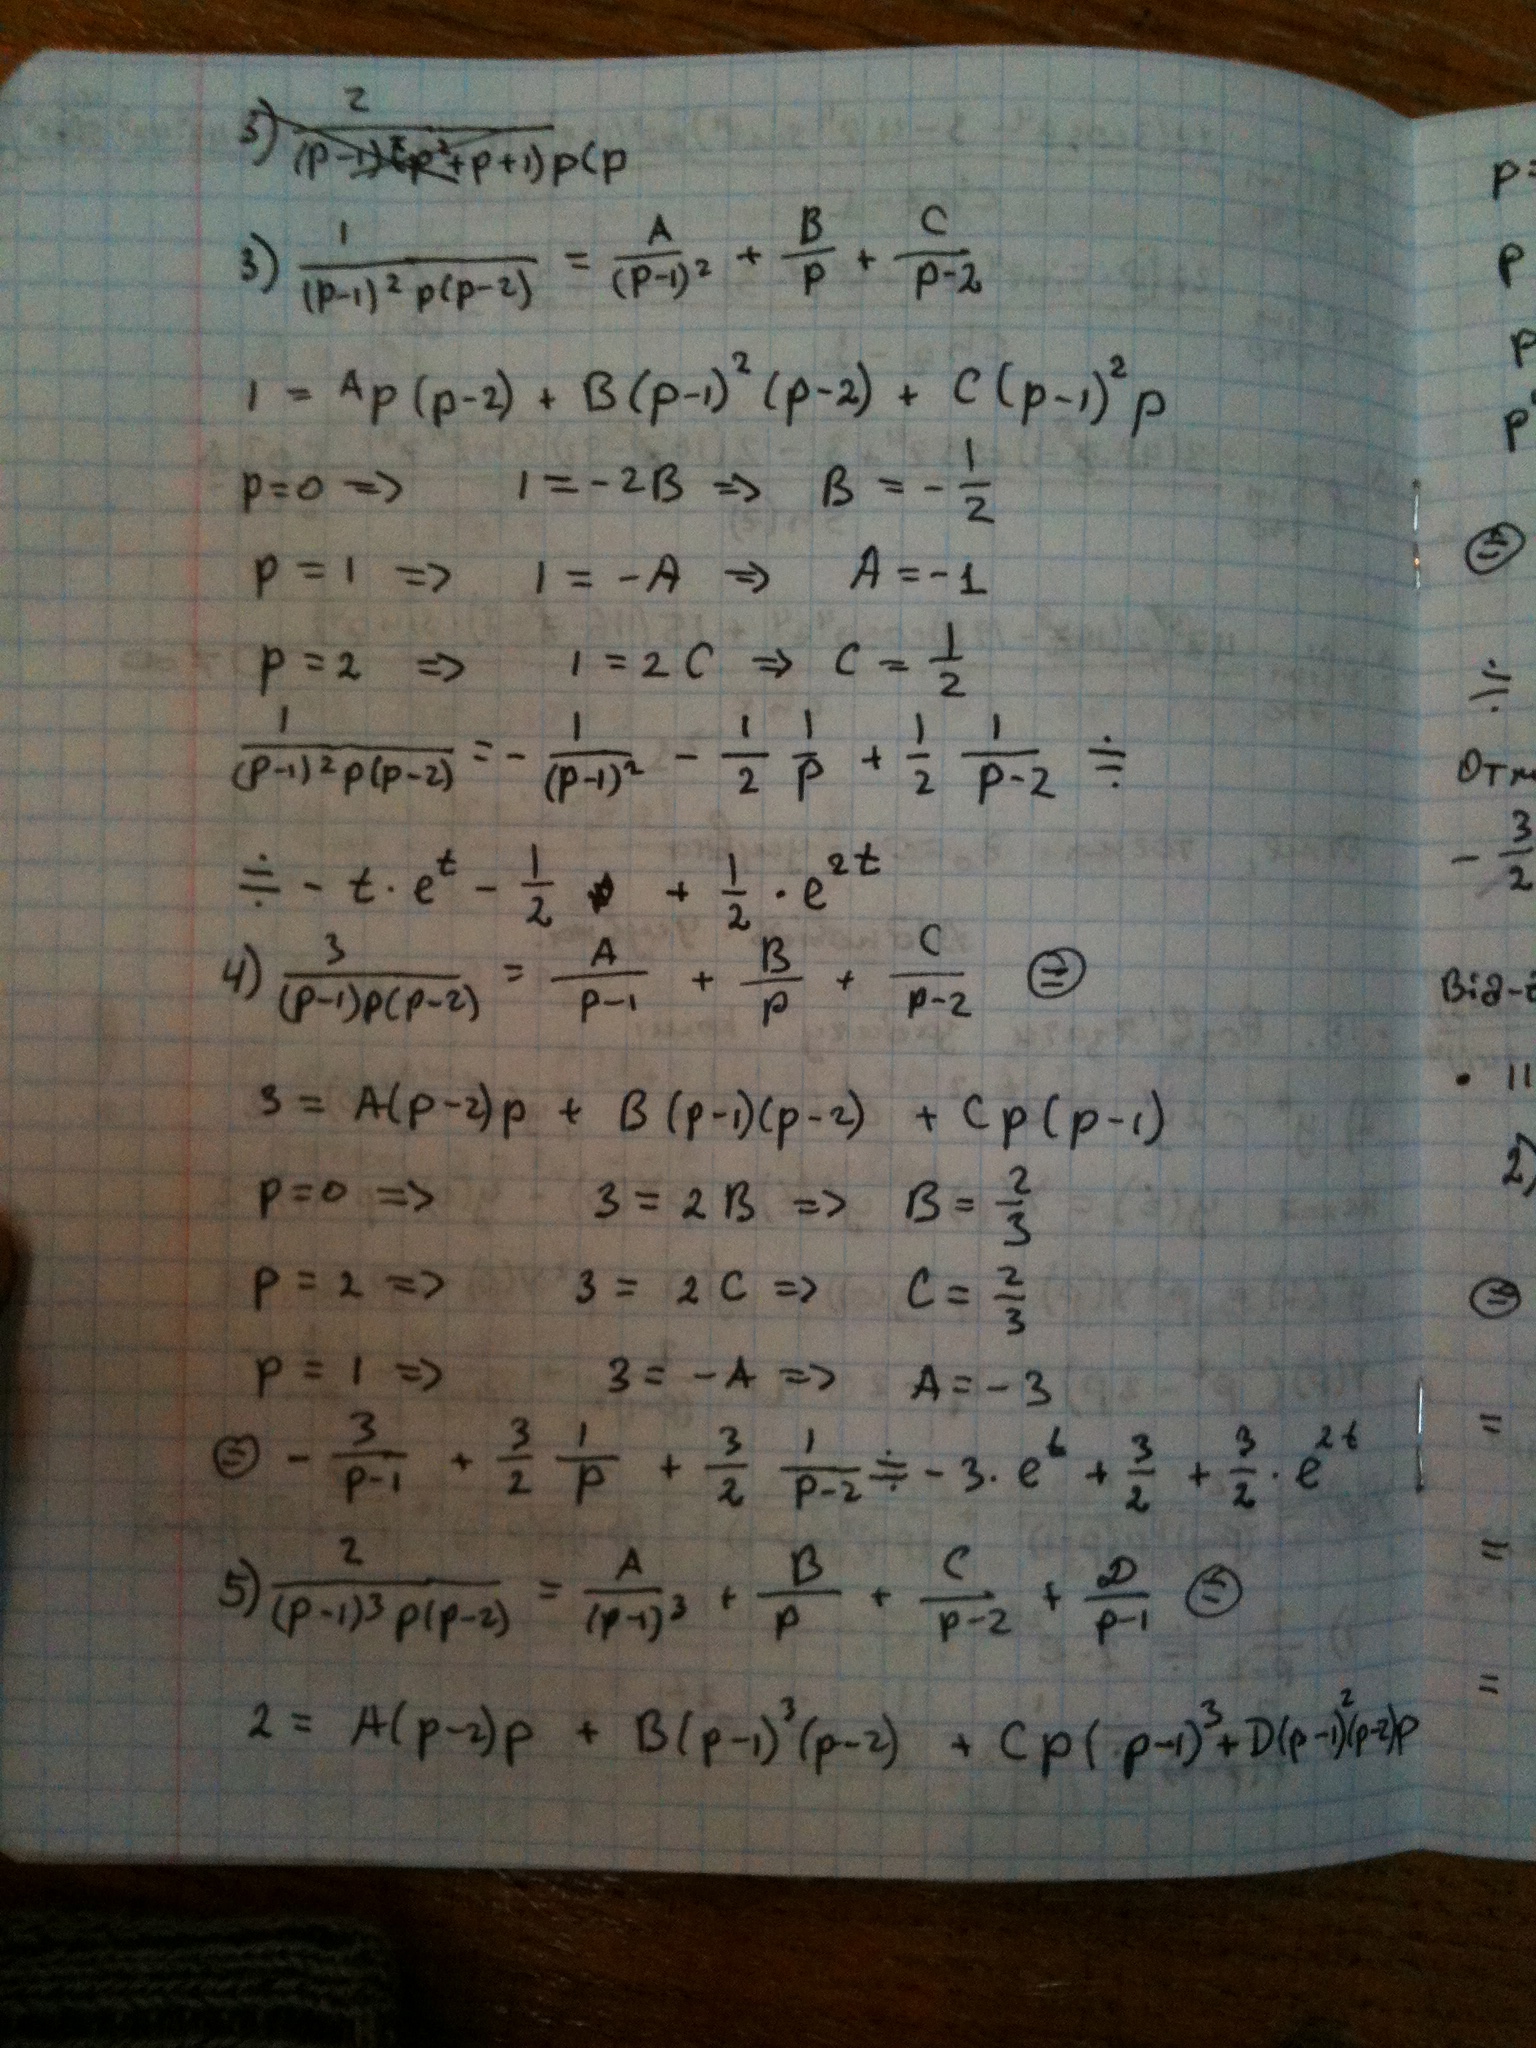 3) 2/((p-1)²(p²+p+1)p(p
3) 1/((p-1)² p(p-2)) = A/(p-1)² + B/p + C/(p-2)
1 = Ap(p-2) + B(p-1)²(p-2) + C(p-1)²p
p=0 => 1=-2B => B = -1/2
p=1 => 1=-A => A=-1
p=2 => 1=2C => C=1/2
1/((p-1)² p(p-2)) = -1/(p-1)² - 1/2 1/p + 1/2 1/(p-2) ≑
≑ - t·e^t - 1/2 + 1/2·e^(2t)
4) 3/((p-1)p(p-2)) = A/(p-1) + B/p + C/(p-2) ⊜
3 = A(p-2)p + B(p-1)(p-2) + Cp(p-1)
p=0 => 3=2B => B=2/3
p=2 => 3=2C => C=2/3
p=1 => 3=-A => A=-3
⊜ -3/(p-1) + 3/2 1/p + 3/2 1/(p-2) ≑ -3·e^t + 3/2 + 3/2·e^(2t)
5) 2/((p-1)³ p(p-2)) = A/(p-1)³ + B/p + C/(p-2) + D/(p-1) ⊜
2 = A(p-2)p + B(p-1)³(p-2) + Cp(p-1)³+D(p-1)²(p-2)p
p=
p
p
p
⊜
≑
-3/2
Від-
2)
⊜
=
=
=